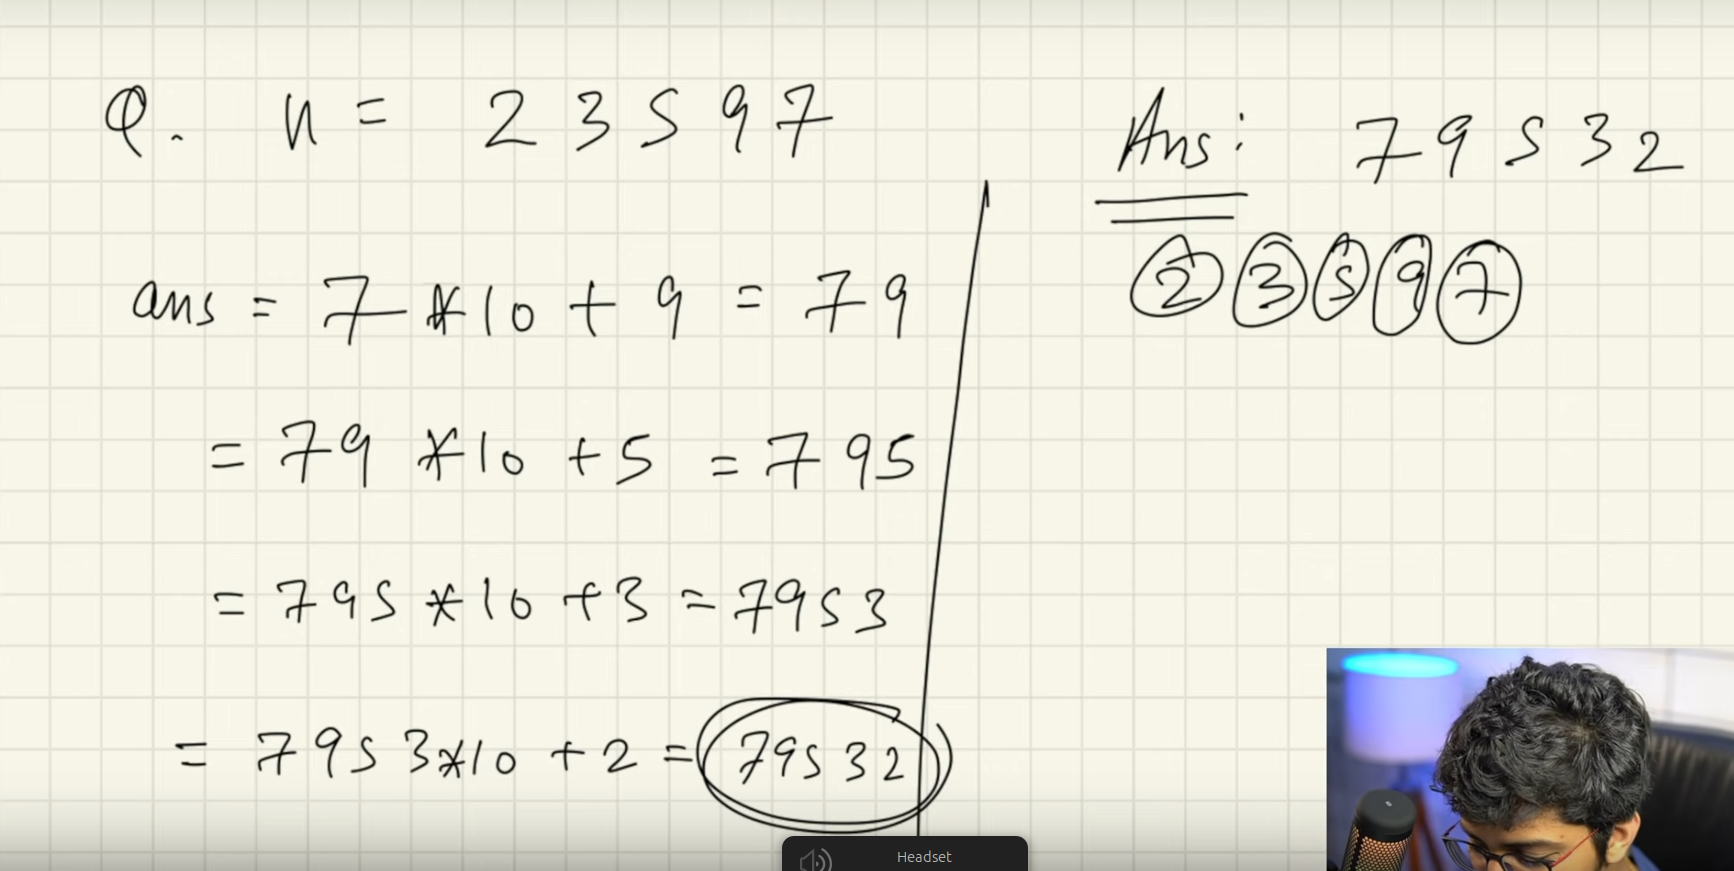 Q. n = 23597
Ans: 79532
2 3 5 9 7
ans = 7 * 10 + 9 = 79
= 79 * 10 + 5 = 795
= 795 * 10 + 3 = 7953
= 7953 * 10 + 2 = 79532
Headset